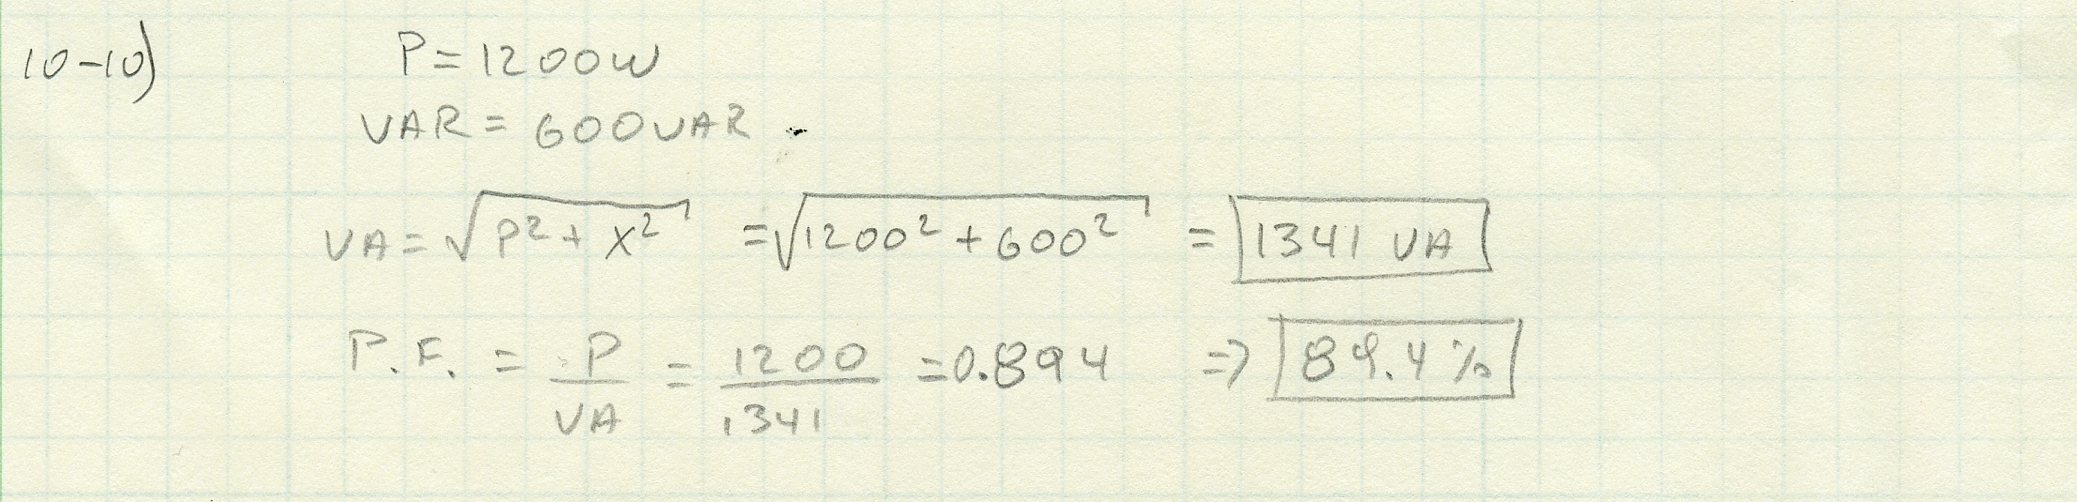 10-10)
P = 1200W
VAR = 600VAR
VA = √(P² + X²) = √(1200² + 600²) = 1341 VA
P.F. = P/VA = 1200/1341 = 0.894 => 89.4%